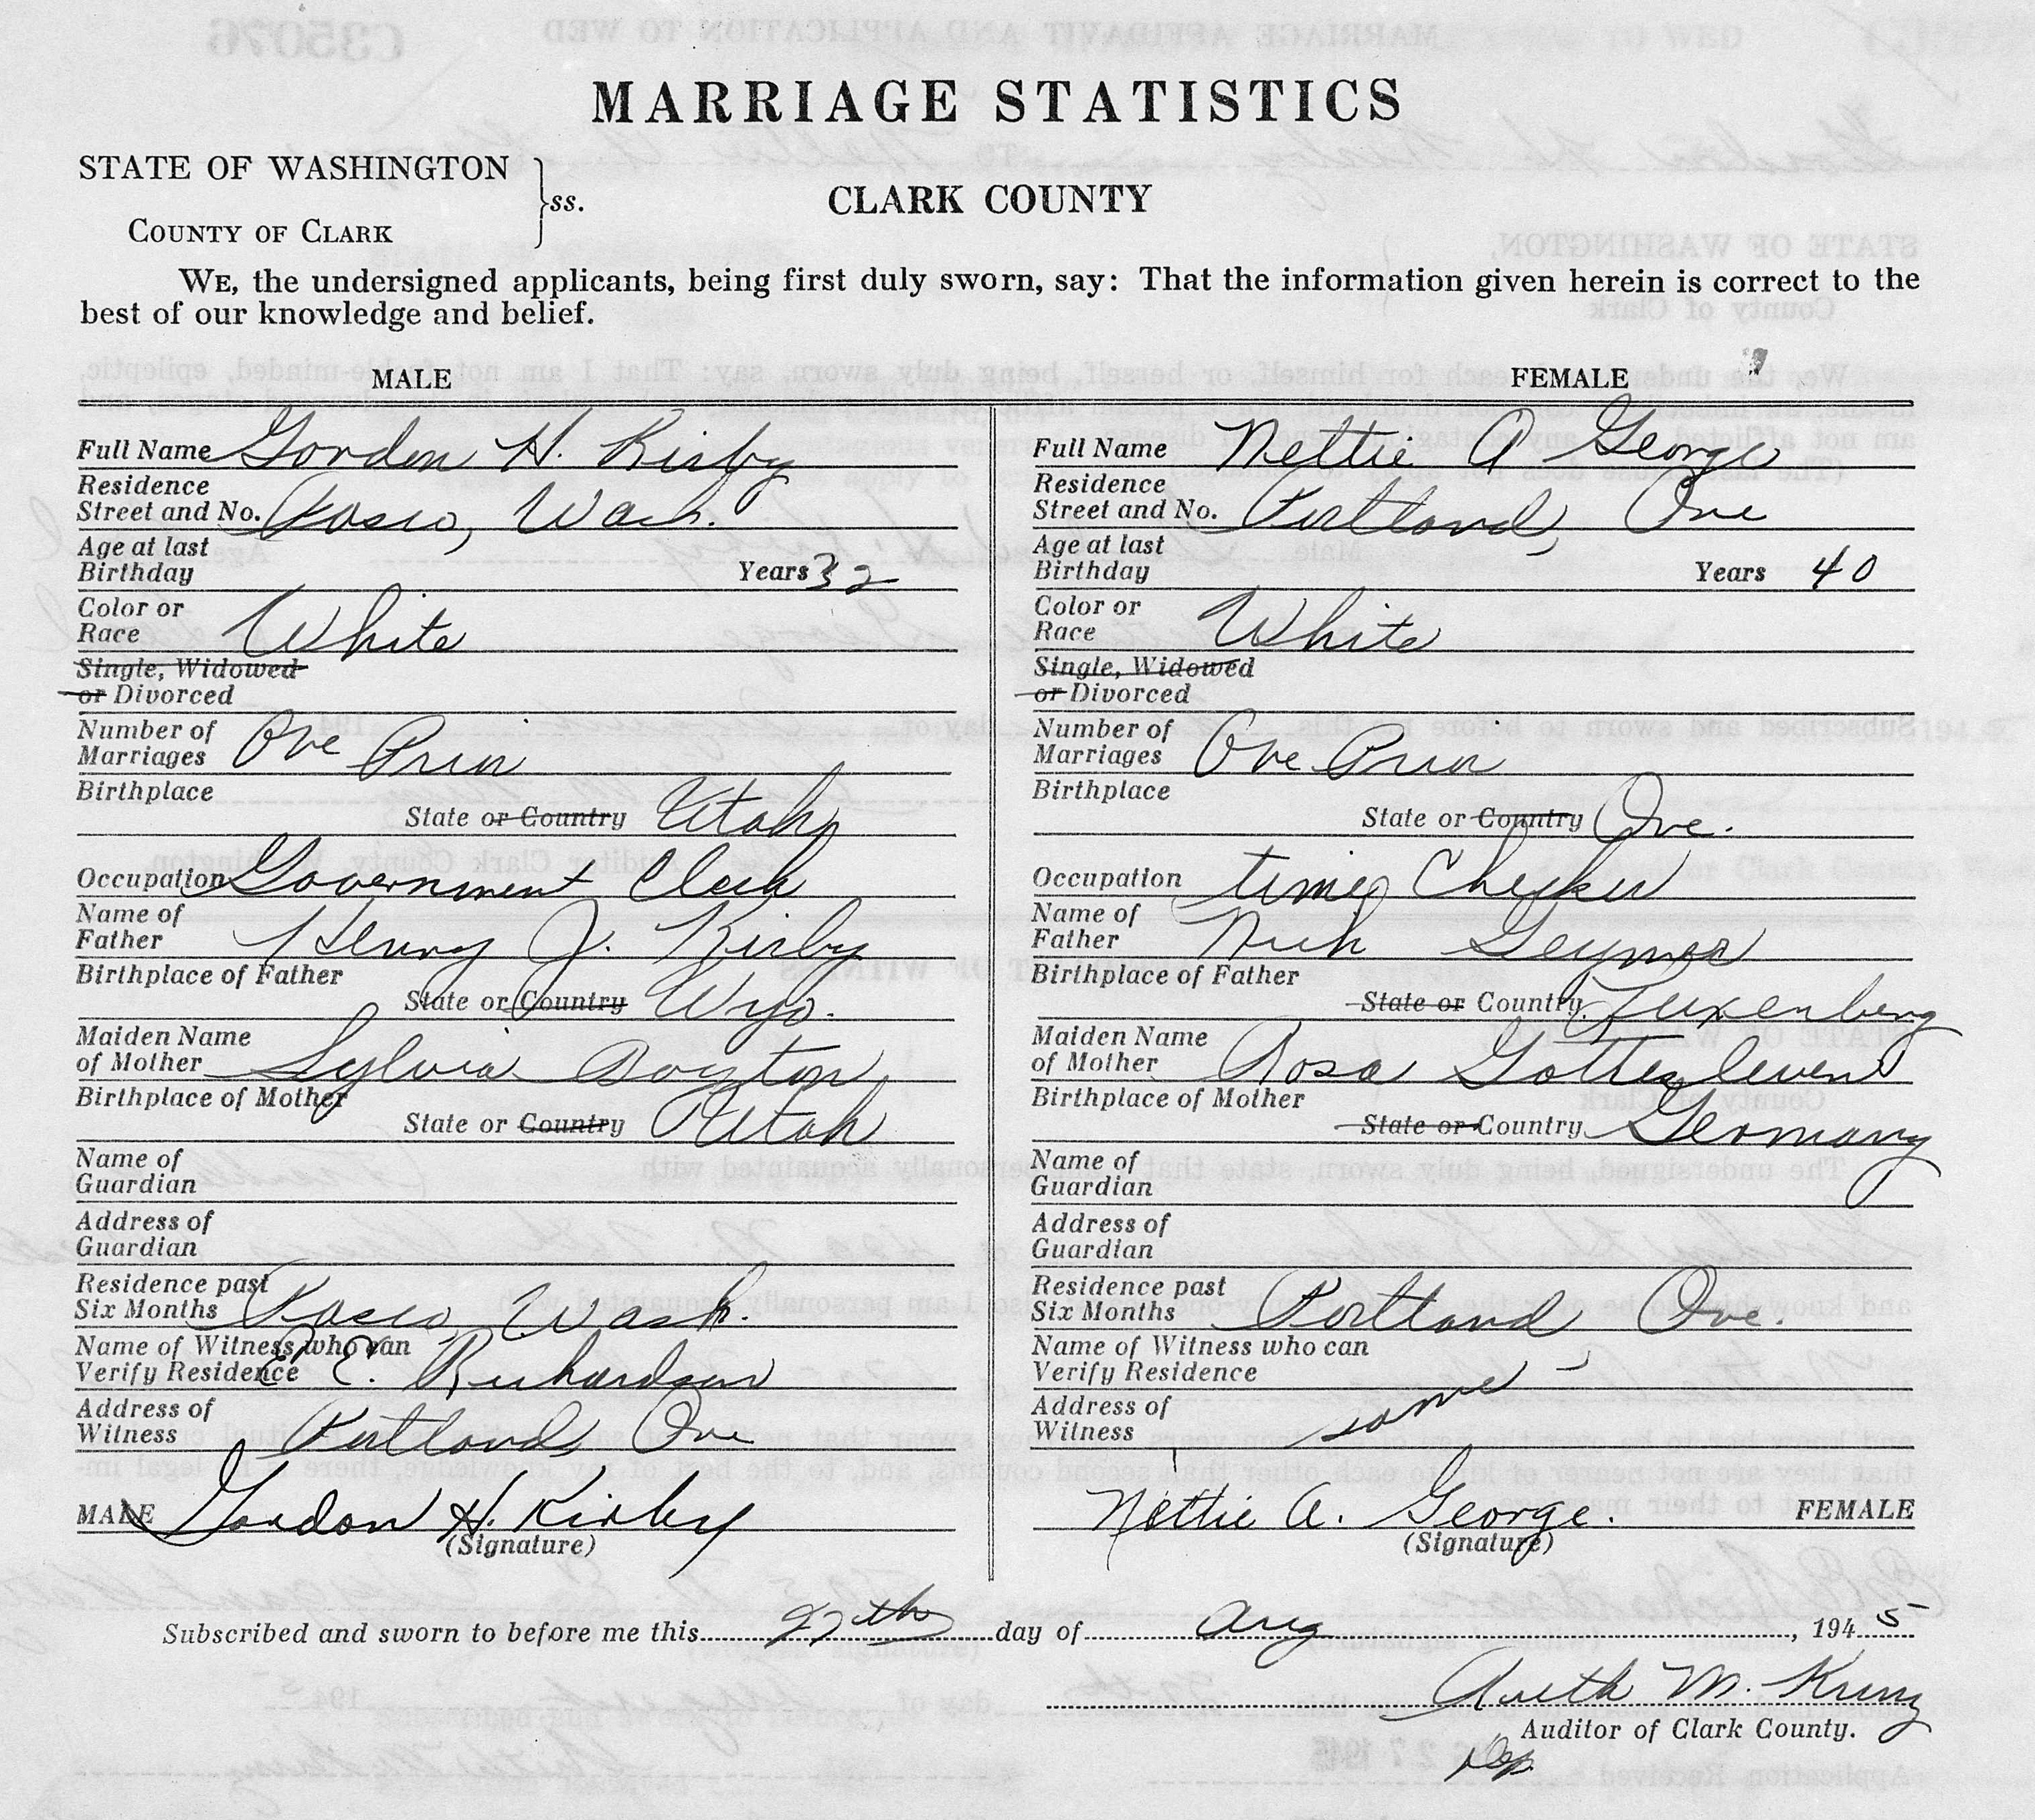 MARRIAGE STATISTICS
STATE OF WASHINGTON
ss.
CLARK COUNTY
COUNTY OF CLARK
WE, the undersigned applicants, being first duly sworn, say: That the information given herein is correct to the
best of our knowledge and belief.
MALE
Full Name Gordon H. Kirby
Residence
Street and No. Pasco, Wash.
Age at last
Birthday Years 32
Color or
Race White
Single, Widowed
or Divorced
Number of
Marriages One Prior
Birthplace
State or Country Utah
Occupation Government Clerk
Name of
Father Henry J. Kirby
Birthplace of Father
State or Country Wyo.
Maiden Name
of Mother Sylvia Boyton
Birthplace of Mother
State or Country Utah
Name of
Guardian
Address of
Guardian
Residence past
Six Months Pasco, Wash.
Name of Witness who can
Verify Residence E. E. Richardson
Address of
Witness Portland Ore
MALE Gordon H. Kirby
(Signature)
FEMALE
Full Name Nettie A George
Residence
Street and No. Portland, Ore
Age at last
Birthday Years 40
Color or
Race White
Single, Widowed
or Divorced
Number of
Marriages One Prior
Birthplace
State or Country Ore.
Occupation time Checker
Name of
Father Nick
Birthplace of Father
State or Country Luxenberg
Maiden Name
of Mother Rosa
Birthplace of Mother
State or Country Germany
Name of
Guardian
Address of
Guardian
Residence past
Six Months Portland Ore.
Name of Witness who can
Verify Residence
Address of
Witness same
Nettie A. George. FEMALE
(Signature)
Subscribed and sworn to before me this 27th day of Aug, 1945
Ruth M.
Auditor of Clark County.
Dep.